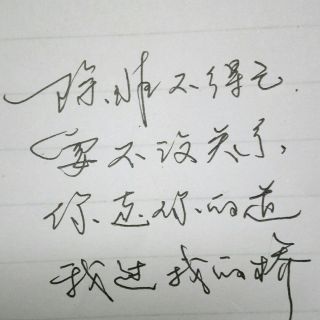 除非不得已.
要不没关系,
你走你的道
我过我的桥